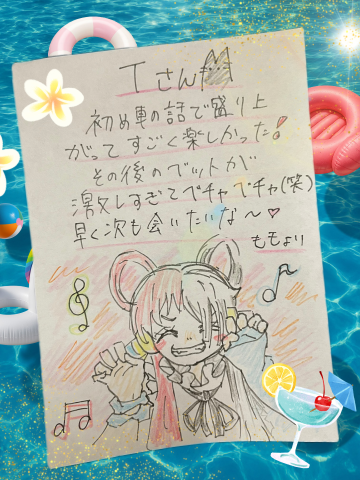 Tさん
初め車の話で盛り上
がってすごく楽しかった!
その後のベットが
激しすぎてベチャベチャ(笑)
早く次も会いたいな〜♡
ももより